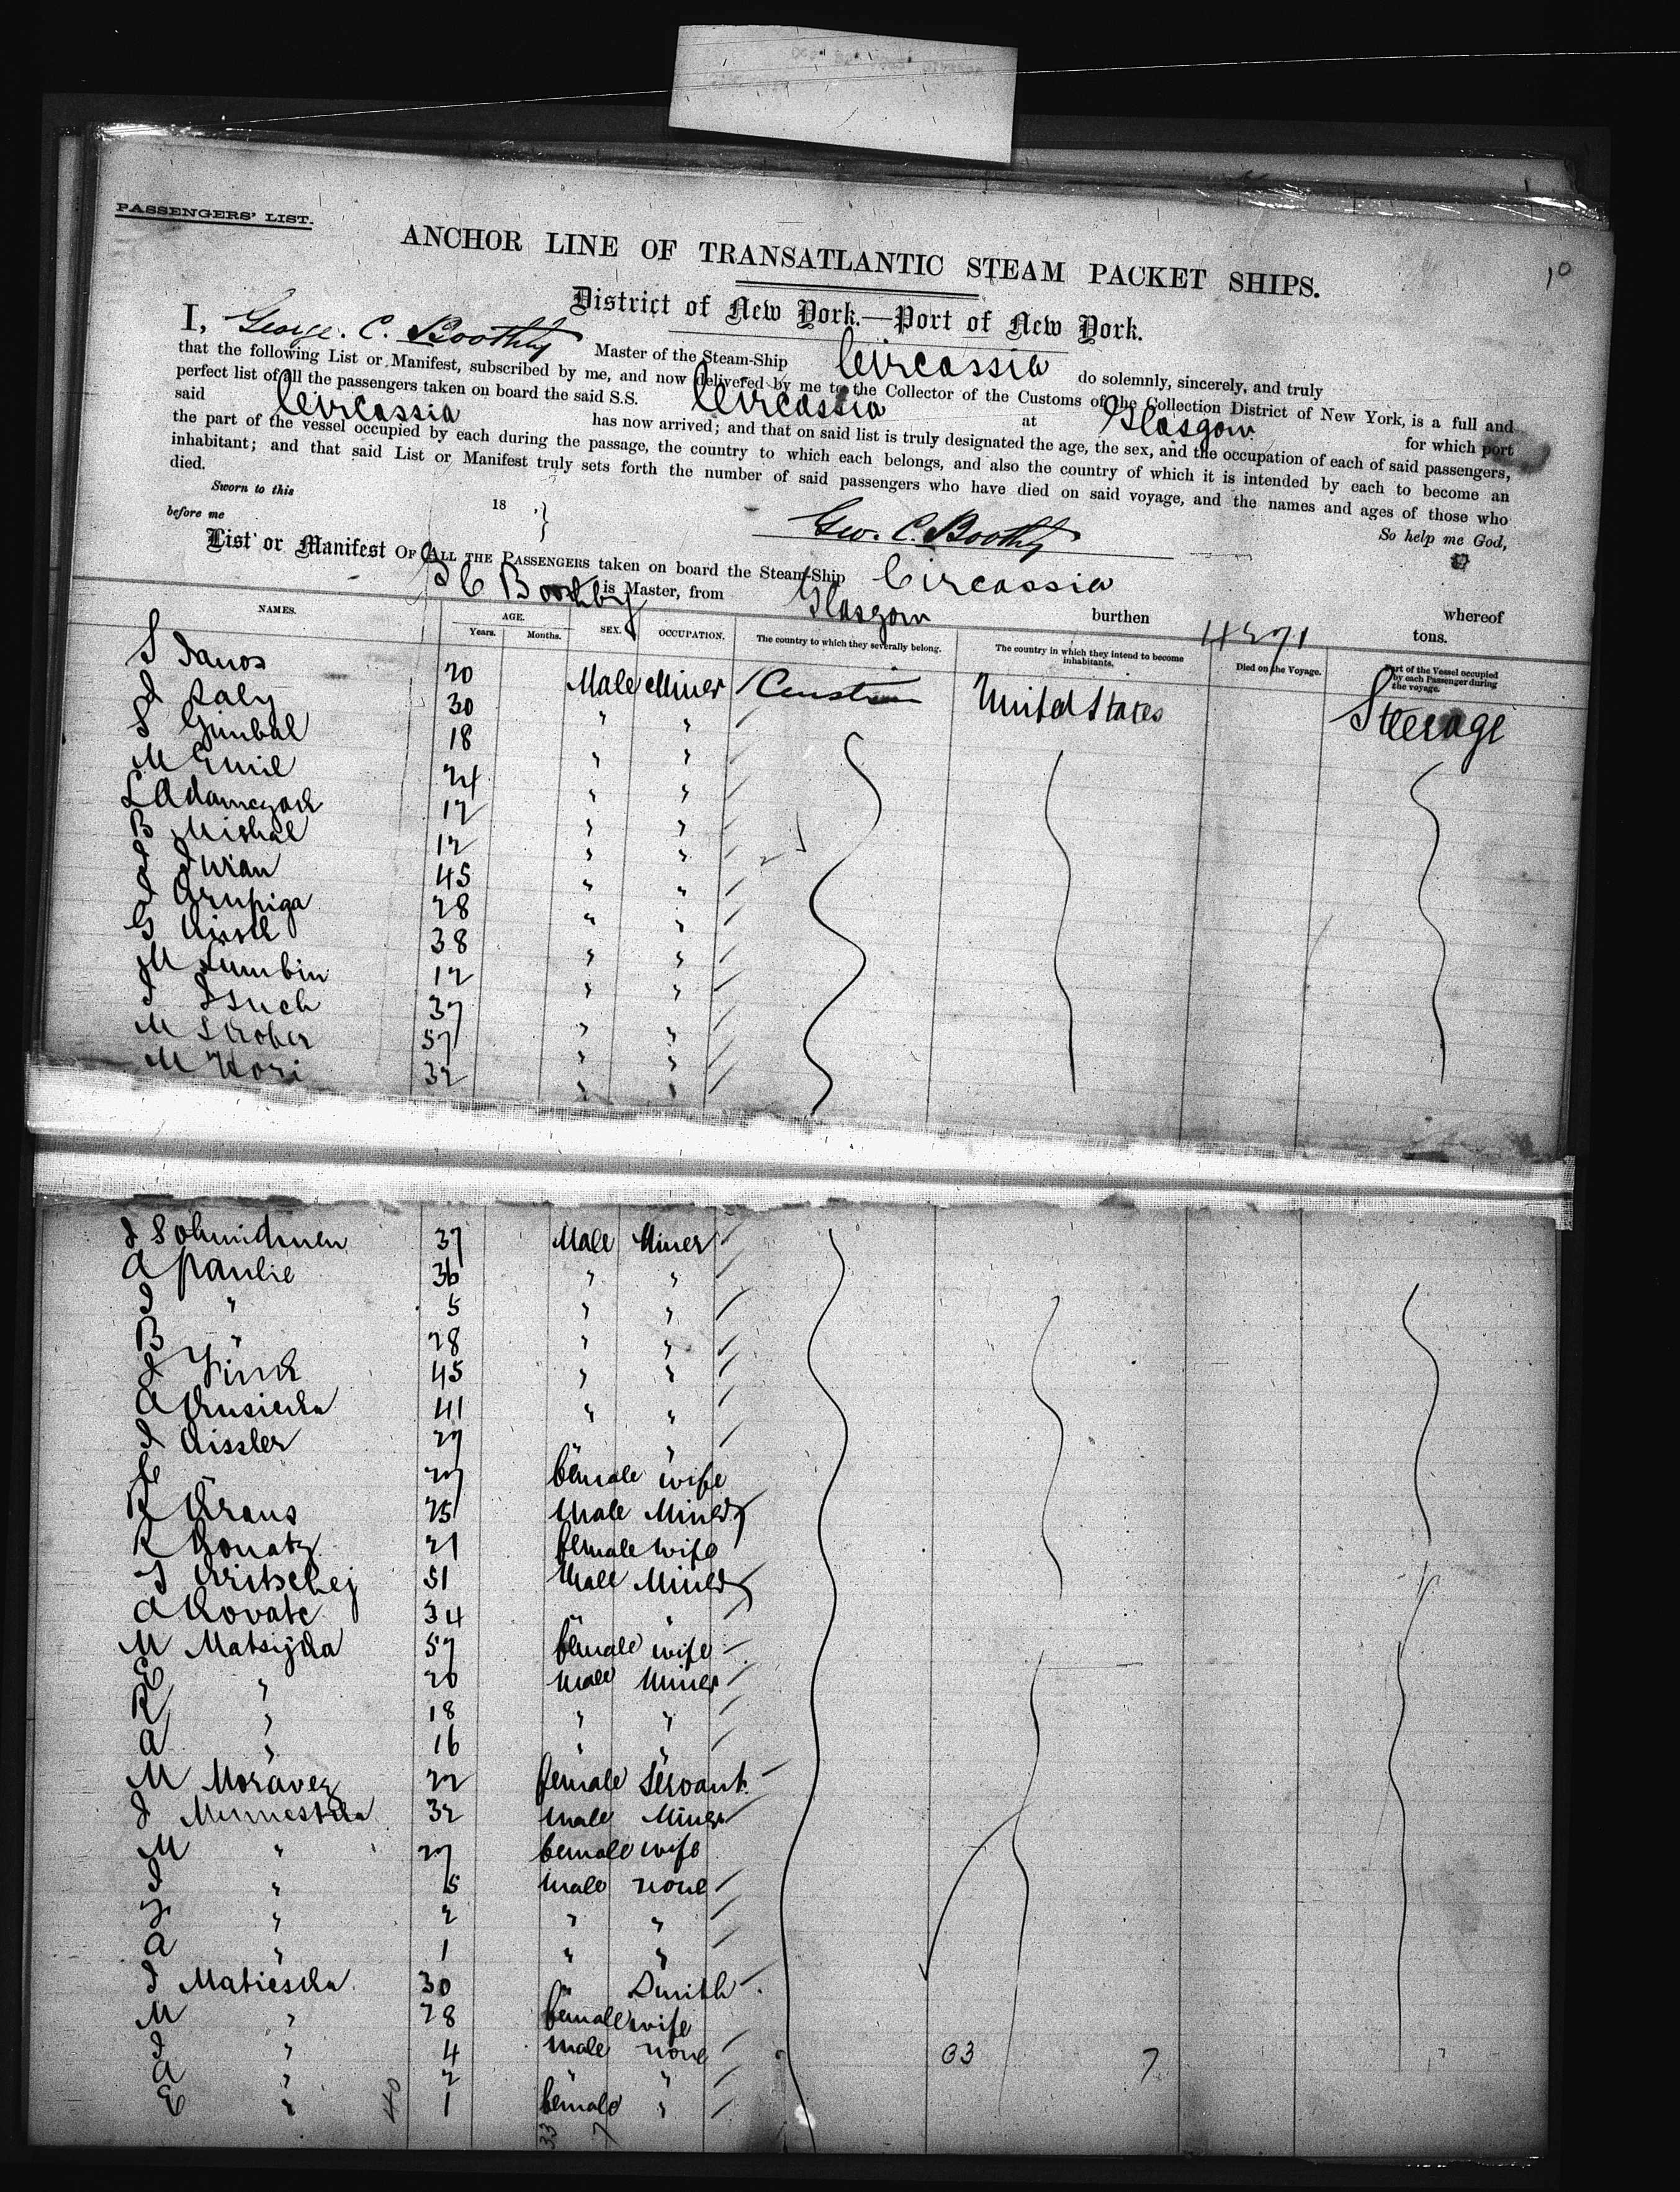 PASSENGERS' LIST.
ANCHOR LINE OF TRANSATLANTIC STEAM PACKET SHIPS.
District of New York.—Port of New York.
I, George. C. Boothby Master of the Steam-Ship Circassia do solemnly, sincerely, and truly
that the following List or Manifest, subscribed by me, and now delivered by me to the Collector of the Customs of the Collection District of New York, is a full and
perfect list of all the passengers taken on board the said S.S. Circassia at Glasgow for which port
said Circassia has now arrived; and that on said list is truly designated the age, the sex, and the occupation of each of said passengers,
the part of the vessel occupied by each during the passage, the country to which each belongs, and also the country of which it is intended by each to become an
inhabitant; and that said List or Manifest truly sets forth the number of said passengers who have died on said voyage, and the names and ages of those who
died.
So help me God,
Sworn to this 18
before me
Geo. C. Boothby
List or Manifest OF ALL THE PASSENGERS taken on board the Steam-Ship Circassia whereof
G C Boothby is Master, from Glasgow burthen 4271 tons.
NAMES. AGE. Years. Months. SEX. OCCUPATION. The country to which they severally belong. The country in which they intend to become inhabitants. Died on the Voyage. Part of the Vessel occupied by each Passenger during the voyage.
S Janos 20 Male Miner Austria United States Steerage
I Paly 30 " "
S Gimbal 18 " "
M Emil 24 " "
L Adamczack 12 " "
B Mishal 12 " "
I Iwan 45 " "
I Grupiga 28 " "
G 38 " "
M Lumbin 12 " "
I 37 " "
M Strober 57 " "
M Kori 32 " "
I 37 Male Miner
A Pawlic 36 " "
I " 5 " "
B " 28 " "
45 " "
A 41 " "
I Kissler 27 " "
27 female wife
R Kraus 25 Male Miner
R Konatz 21 female wife
Kritschej 51 Male Miner
A Kovatc 34 " "
M Matsijka 57 female wife
E " 20 male miner
R " 18 " "
A " 16 " "
M Moravez 22 female Servant
I 32 male Miner
M " 27 female wife
I " 5 male none
" 2 " "
A " 1 " "
I Matieska 30 " Smith
M " 28 female wife
I " 4 male none
A " 2 " "
E " 1 female "
40 33 7